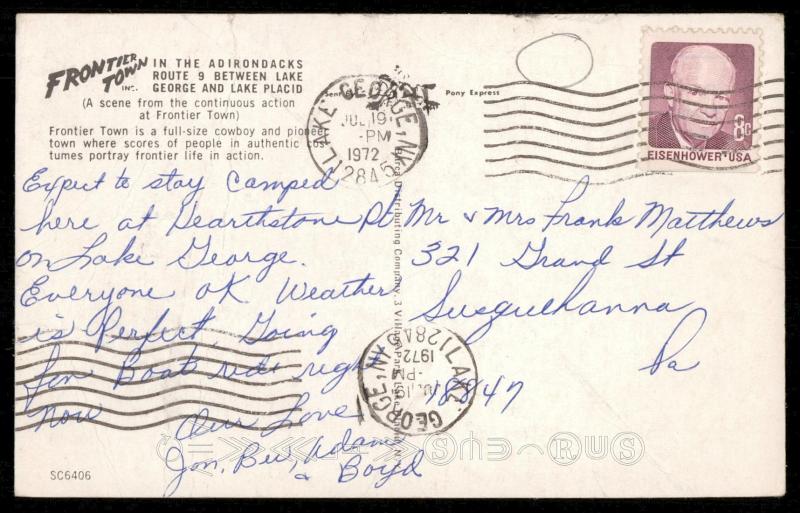 FRONTIER TOWN INC.
IN THE ADIRONDACKS
ROUTE 9 BETWEEN LAKE
GEORGE AND LAKE PLACID
(A scene from the continuous action
at Frontier Town)
Frontier Town is a full-size cowboy and pioneer
town where scores of people in authentic cos-
tumes portray frontier life in action.
Pony Express
LAKE GEORGE, N.Y.
JUL 19
PM
1972
12845
8c
EISENHOWER·USA
Expect to stay camped
here at Hearthstone Pt
on Lake George.
Everyone OK. Weather
is Perfect. Going
for Boat ride right
now
Our Love
Jon, Bev, Adam
& Boyd
Mr & Mrs Frank Matthews
321 Grand St
Susquehanna
Pa
18847
Distributing Company, 3
LAKE GEORGE, N.Y.
JUL 19
PM
1972
1284
SC6406